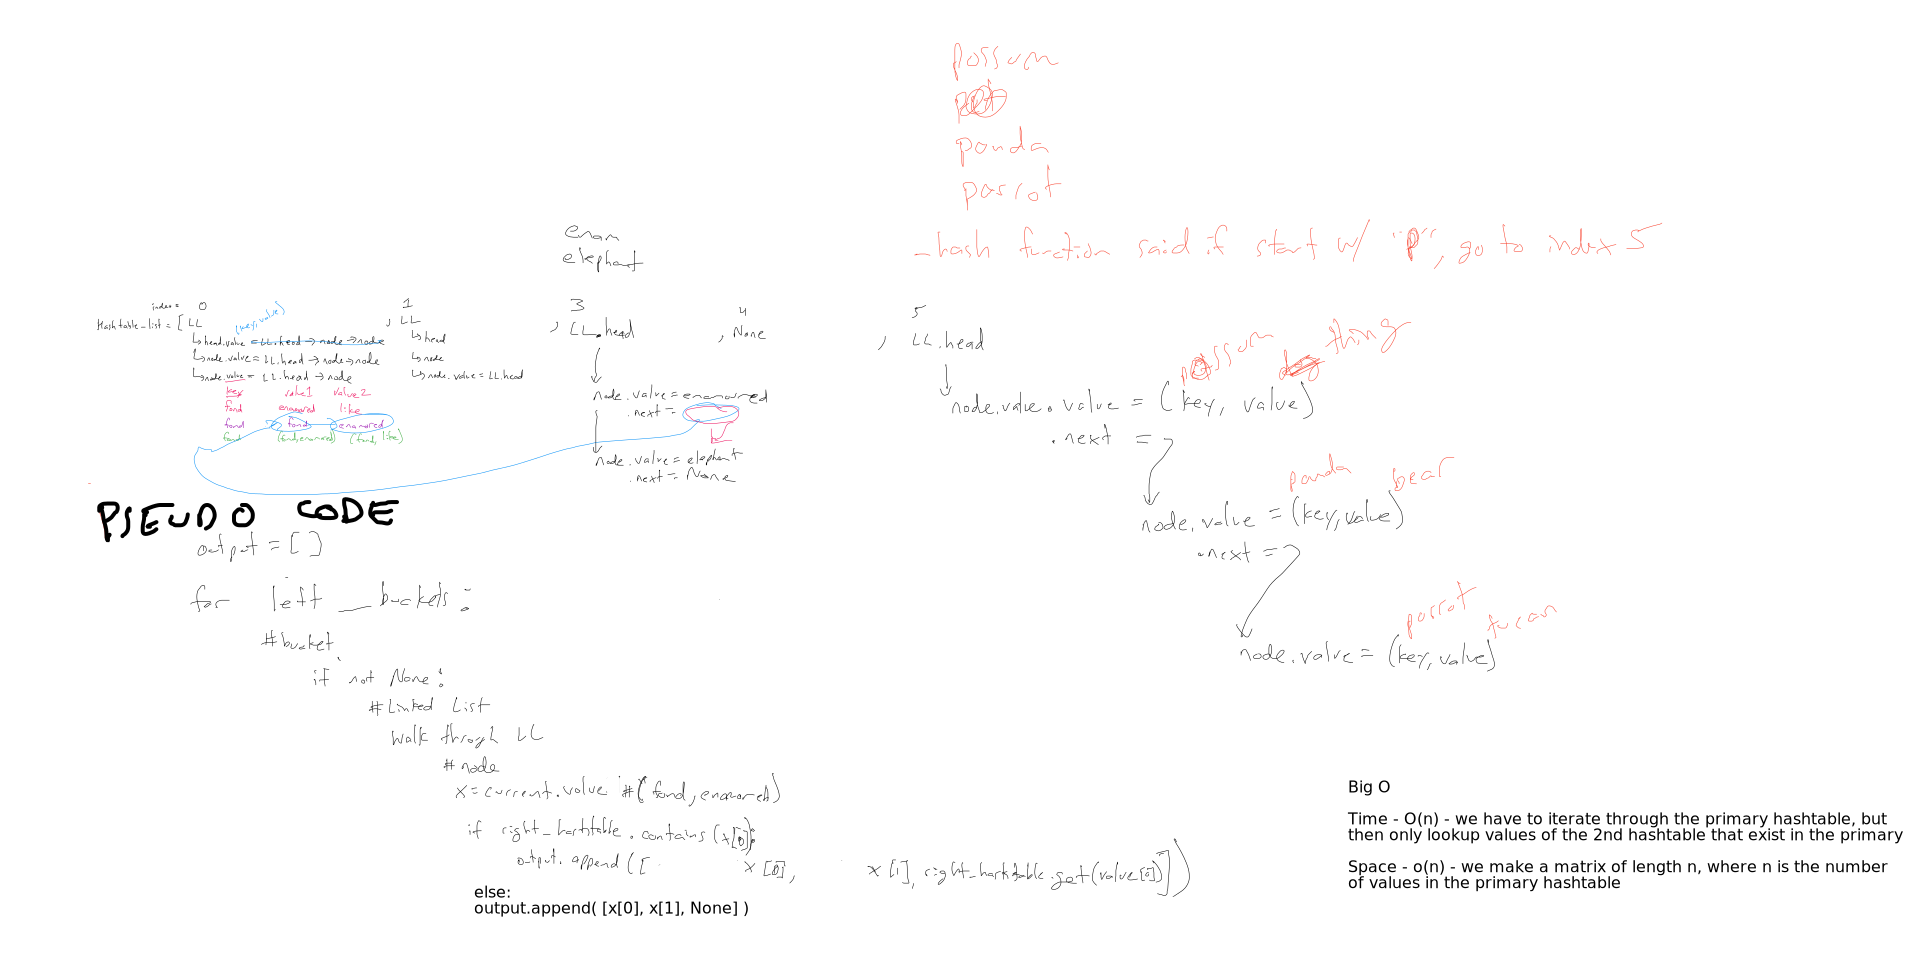 possum
panda
parrot
- hash function said if start w/ "p", go to index 5
enam
elephant
index = 0 1 3 4 5
Hashtable_list = [ LL , LL , LL.head , None , LL.head
(key, value)
↳ head.value = LL.head → node → node ↳ head
↳ node.value = LL.head → node → node ↳ node
↳ node.value = LL.head → node ↳ node.value = LL.head
key value1 value2
fond enamored like
fond fond enamored
fond (fond, enamored) (fond, like)
node.value = enamored
.next =
node.value = elephant
.next = None
possum thing
node.value.value = (key, value)
.next =
panda bear
node.value = (key, value)
.next =
parrot tucan
node.value = (key, value)
PSEUDO CODE
output = []
for left __ buckets:
#bucket
if not None:
#Linked List
walk through LL
#node
x = current.value #(fond, enamored)
if right_hashtable.contains(x[0]):
output.append([ x[0], x[1], right_hashtable.get(value[0])])
else:
output.append( [x[0], x[1], None] )
Big O
Time - O(n) - we have to iterate through the primary hashtable, but
then only lookup values of the 2nd hashtable that exist in the primary
Space - o(n) - we make a matrix of length n, where n is the number
of values in the primary hashtable